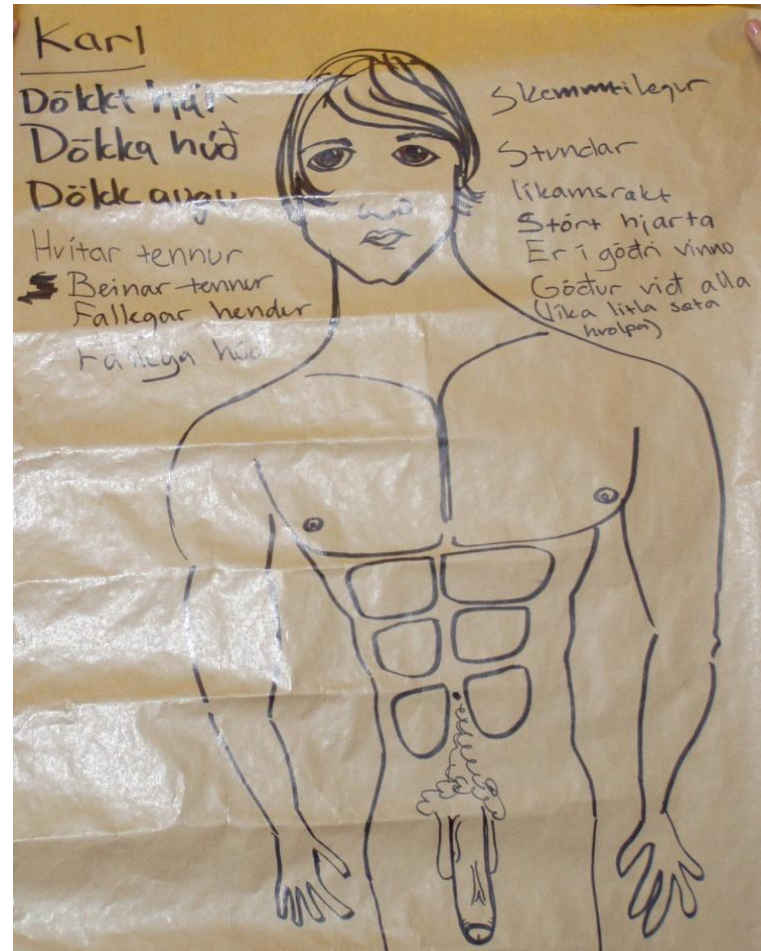 Karl
Dökkt hár
Dökka húð
Dökk augu
Hvítar tennur
Beinar tennur
Fallegar hendur
Fallega húð
Skemmtilegur
Stundar
líkamsrækt
Stórt hjarta
Er í góðri vinnu
Góður við alla
(líka litla sæta
hvolpa)